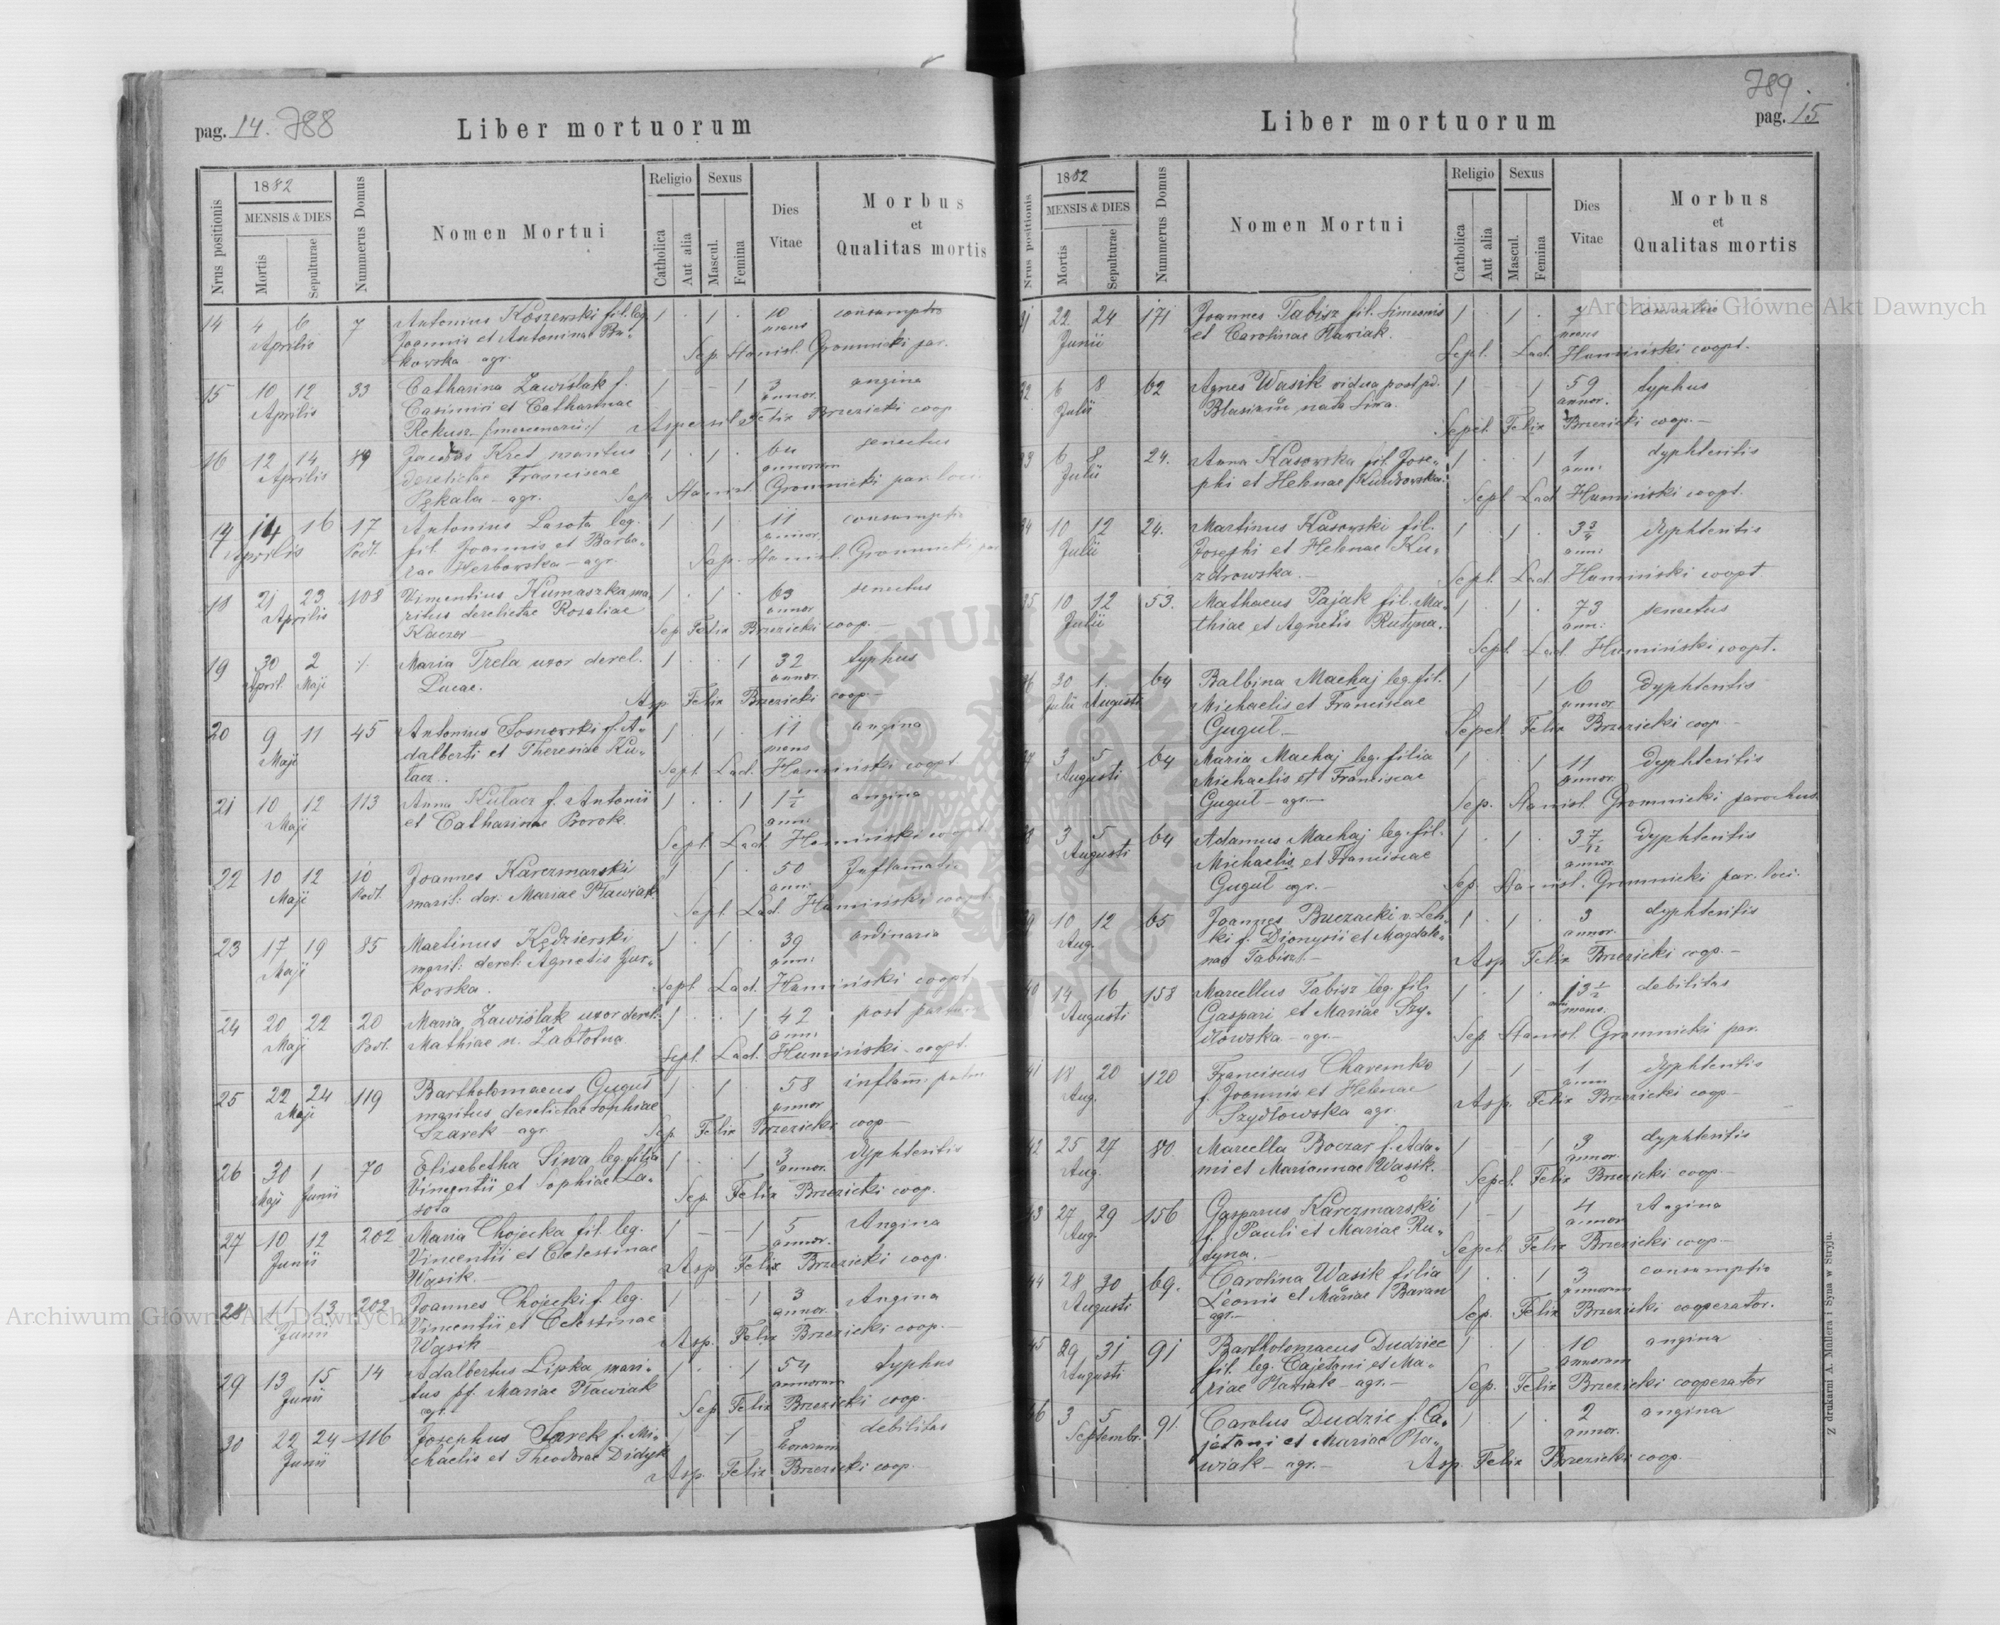 pag. 14. 788
Liber mortuorum
Nrus positionis
1882
MENSIS & DIES
Mortis
Sepulturae
Nummerus Domus
Nomen Mortui
Religio
Catholica
Aut alia
Sexus
Mascul.
Femina
Dies Vitae
Morbus
et
Qualitas mortis
14 4 6 7 Antonius Koszewski fil. leg. 1 . 1 . 10 consumptio
Aprilis Joannis et Antoninae Ba- mens
kowska agr. Sep. Stanisl. Gromnicki par.
15 10 12 33 Catharina Zawiślak f. 1 - - 1 3 angina
Aprilis Casimiri et Catharinae annor.
Rekusz Aspersit Felix Brzezicki coop
16 12 14 89 Kret maritus 1 senectus
Aprilis derelictae Franciscae annorum
Pękala - agr. Sep. Stanisl. Gromnicki par. loci
17 14 16 17 Antonius Lasota leg. 1 . 1 . 11 consumptio
Aprilis Podl. fil. Joannis et Barba- annor.
rae Herbowska - agr. Sep. Stanisl. Gromnicki
18 21 23 108 Vincentius Kumaszka ma- 1 . 1 . 63 senectus
Aprilis ritus derelictae Rosaliae annor
Kaczor Sep. Felix Brzezicki coop.
19 30 2 Maria Trela uxor derel. 1 . . 1 32 typhus
April. Maji Lucae. annor.
Asp Felix Brzezicki coop
20 9 11 45 Antonius Sosnowski f. A- 1 . 1 . 11 angina
Maji dalberti et Theresiae Ku- mens
łacz. Sept. Lad. Humiński coopt
21 10 12 113 Anna Kułacz f. Antonii 1 . . 1 1 1/2 angina
Maji et Catharinae Borok. anni
Sept. Lad. Humiński coopt
22 10 12 10 Joannes Karczmarski 1 . 1 . 50 Inflamatio
Maji Podl. marit: der. Mariae Pławiak ann:
Sept. Lad. Humiński coopt
23 17 19 85 Martinus Kędzierski 1 . 1 . 39 ordinaria
Maji marit: derel: Agnetis Żur- ann:
kowska. Sept. Lad. Humiński coopt
24 20 22 20 Maria Zawiślak uxor derel. 1 . . 1 42 post partum
Maji Podl. Mathiae n. Zabłotna ann:
Sept. Lad. Humiński coopt.
25 22 24 119 Bartholomaeus Guguł 1 . 1 . 58 inflam. pulm
Maji maritus derelictae Sophiae annor
Szarek agr. Sep. Felix Brzezicki coop
26 30 1 70 Elisabetha Siwa leg. filia 1 . . 1 3 dyphteritis
Maji Junii Vincentii et Sophiae La- annor.
sota Sep. Felix Brzezicki coop.
27 10 12 202 Maria Chojecka fil. leg. 1 - - 1 5 Angina
Junii Vincentii et Celestinae annor.
Wąsik. Asp. Felix Brzezicki coop.
28 11 13 202 Joannes Chojecki f. leg. 1 - - 1 3 Angina
Junii Vincentii et Celestinae annor.
Wąsik Asp. Felix Brzezicki coop.
29 13 15 14 Adalbertus Lipka mari- 1 . . 1 54 typhus
Junii tus pf. Mariae Pławiak annorum
agr. Sep Felix Brzezicki coop.
30 22 24 116 Josephus f. Mi- 1 - 1 8 debilitas
Junii chaelis et Theodorae Didyk horarum
Asp. Felix Brzezicki coop.
789.
pag. 15
Liber mortuorum
Nrus positionis
1882
MENSIS & DIES
Mortis
Sepulturae
Nummerus Domus
Nomen Mortui
Religio
Catholica
Aut alia
Sexus
Mascul.
Femina
Dies Vitae
Morbus
et
Qualitas mortis
31 22 24 171 Joannes Tabisz fil. Simeonis 1 . 1 . 7
Junii et Carolinae Pławiak. mens
Sept. Lad. Humiński coopt.
32 6 8 62 Agnes Wasik vidua post pd. 1 - - 1 59 typhus
Julii Blasium nata Siwa. annor.
Sepel. Felix Brzezicki coop.
33 6 8 24. Anna Kasowska fil. Jose- 1 . . 1 1 dyphteritis
Julii phi et Helenae Kuzdrowska. ann:
Sept. Lad. Humiński coopt.
34 10 12 24. Martinus Kasowski fil. 1 . 1 . 3 3/4 dyphteritis
Julii Josephi et Helenae Ku- ann:
zdrowska. Sept. Lad. Humiński coopt
35 10 12 53. Mathaeus Pająk fil. Ma- 1 . 1 . 73 senectus
Julii thiae et Agnetis Rutyna. ann:
Sept. Lad. Humiński coopt.
36 30 1. 64 Balbina Machaj leg. fil. 1 . . 1 6 dyphteritis
Julii Augusti Michaelis et Franciscae annor.
Guguł Sepel. Felix Brzezicki coop
37 3 5 64 Maria Machaj leg. filia 1 . . 1 11 dyphteritis
Augusti Michaelis et Franciscae annor.
Guguł - agr. Sep. Stanisl. Gromnicki parochus.
38 3 5 64 Adamus Machaj leg. fil. 1 . 1 . 3 7/12 Dyphteritis
Augusti Michaelis et Franciscae annor.
Guguł agr. Sep. Stanisl. Gromnicki par. loci.
39 10 12 65 Joannes Buczacki v. Leń- 1 . 1 . 3 dyphteritis
Aug. ski f. Dionysii et Magdale- annor.
nae Tabisz. Asp Felix Brzezicki coop.
40 14 16 158 Marcellus Tabisz leg. fil. 1 . 1 . debilitas
Augusti Gaspari et Mariae Szy- mens.
dłowska - agr. Sep. Stanisl Gromnicki par.
41 18 20 120 Franciscus Charemka 1 - 1 - 1 dyphteritis
Aug. f. Joannis et Helenae anni
Szydłowska agr. Asp. Felix Brzezicki coop
42 25 27 80. Marcella Boczar f. Ada- 1 . . 1 3 dyphteritis
Aug. mi et Mariannae Wąsik. annor.
Sepel Felix Brzezicki coop.
43 27 29 156 Gasparus Karczmarski 1 - 1 - 4 Angina
Aug. f. Pauli et Mariae Ru- annor
tyna. Sepel. Felix Brzezicki coop.
44 28 30 69. Carolina Wasik filia 1 . . 1 3 consumptio
Augusti Leonis et Mariae Baran annorum
agr. Sep. Felix Brzezicki cooperator.
45 29 31 91 Bartholomaeus Dudzic 1 . 1 . 10 angina
Augusti fil. leg. Cajetani et Ma- annorum
riae Pławiak - agr. Sep. Felix Brzezicki cooperator
46 3 5 91. Carolus Dudzic f. Ca- 1 . 1 . 2 angina
Septembr. jetani et Mariae Pła- annor.
wiak - agr. Asp. Felix Brzezicki coop.
Z drukarni A. Müllera i Syna w Stryju.
Archiwum Główne Akt Dawnych
Archiwum Główne Akt Dawnych
ARCHIWUM GŁÓWNE AKT DAWNYCH